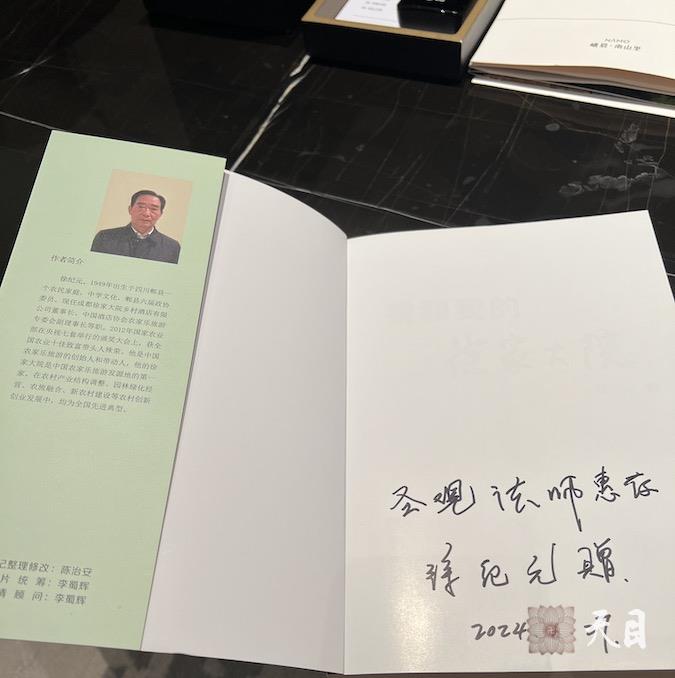 NAMO
峨眉·南山里
作者简介
徐纪元，1949年出生于四川郫县一
个农民家庭，中学文化，郫县六届政协
委员，现任成都徐家大院乡村酒店有限
公司董事长、中国酒店协会农家乐旅游
专委会副理事长等职。2012年国家农业
部在央视七套举行的颁奖大会上，获全
国农业十佳致富带头人殊荣。他是中国
农家乐旅游的创始人和带动人，他的徐
家大院是中国农家乐旅游发源地的第一
家。在农村产业结构调整、园林绿化经
营、农旅融合、新农村建设等农村创新
创业发展中，均为全国先进典型。
记整理修改：陈治安
片 统 筹：李蜀辉
顾 问：李蜀辉
圣观法师惠存
徐纪元赠
2024
天目